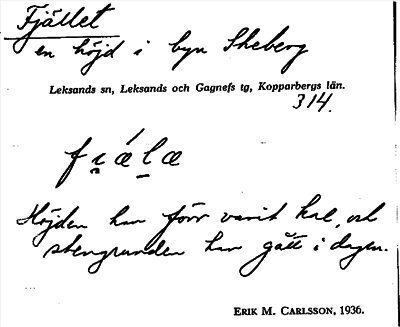 Fjället
en höjd i byn Skeberg
Leksands sn, Leksands och Gagnefs tg, Kopparbergs län.
314.
Höjden har förr varit kal, och
stengrunden har gått i dagen.
ERIK M. CARLSSON, 1936.